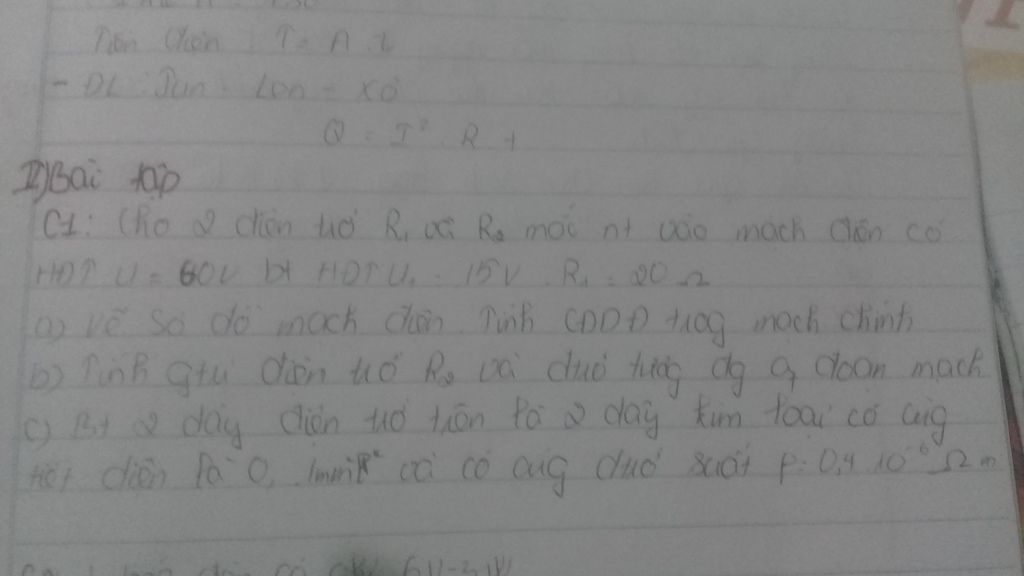 Tiền điện : T = A . t
- ĐL Jun - Len - xơ
Q = I² . R . t
II) Bài tập
C1: Cho 2 điện trở R₁ và R₂ mắc nt vào mạch điện có
HĐT U = 60V bt HĐT U₁ = 15V . R₁ = 20 Ω
a) Vẽ sơ đồ mạch điện. Tính CĐDĐ trog mạch chính
b) Tính gtrị điện trở R₂ và đtrở tương đg của đoạn mạch
c) Bt 2 dây điện trở trên là 2 dây kim loại có cùng
tiết diện là 0,1mm² và có cùng đtrở suất ρ = 0,4 10⁻⁶ Ω m
có 6V-3W